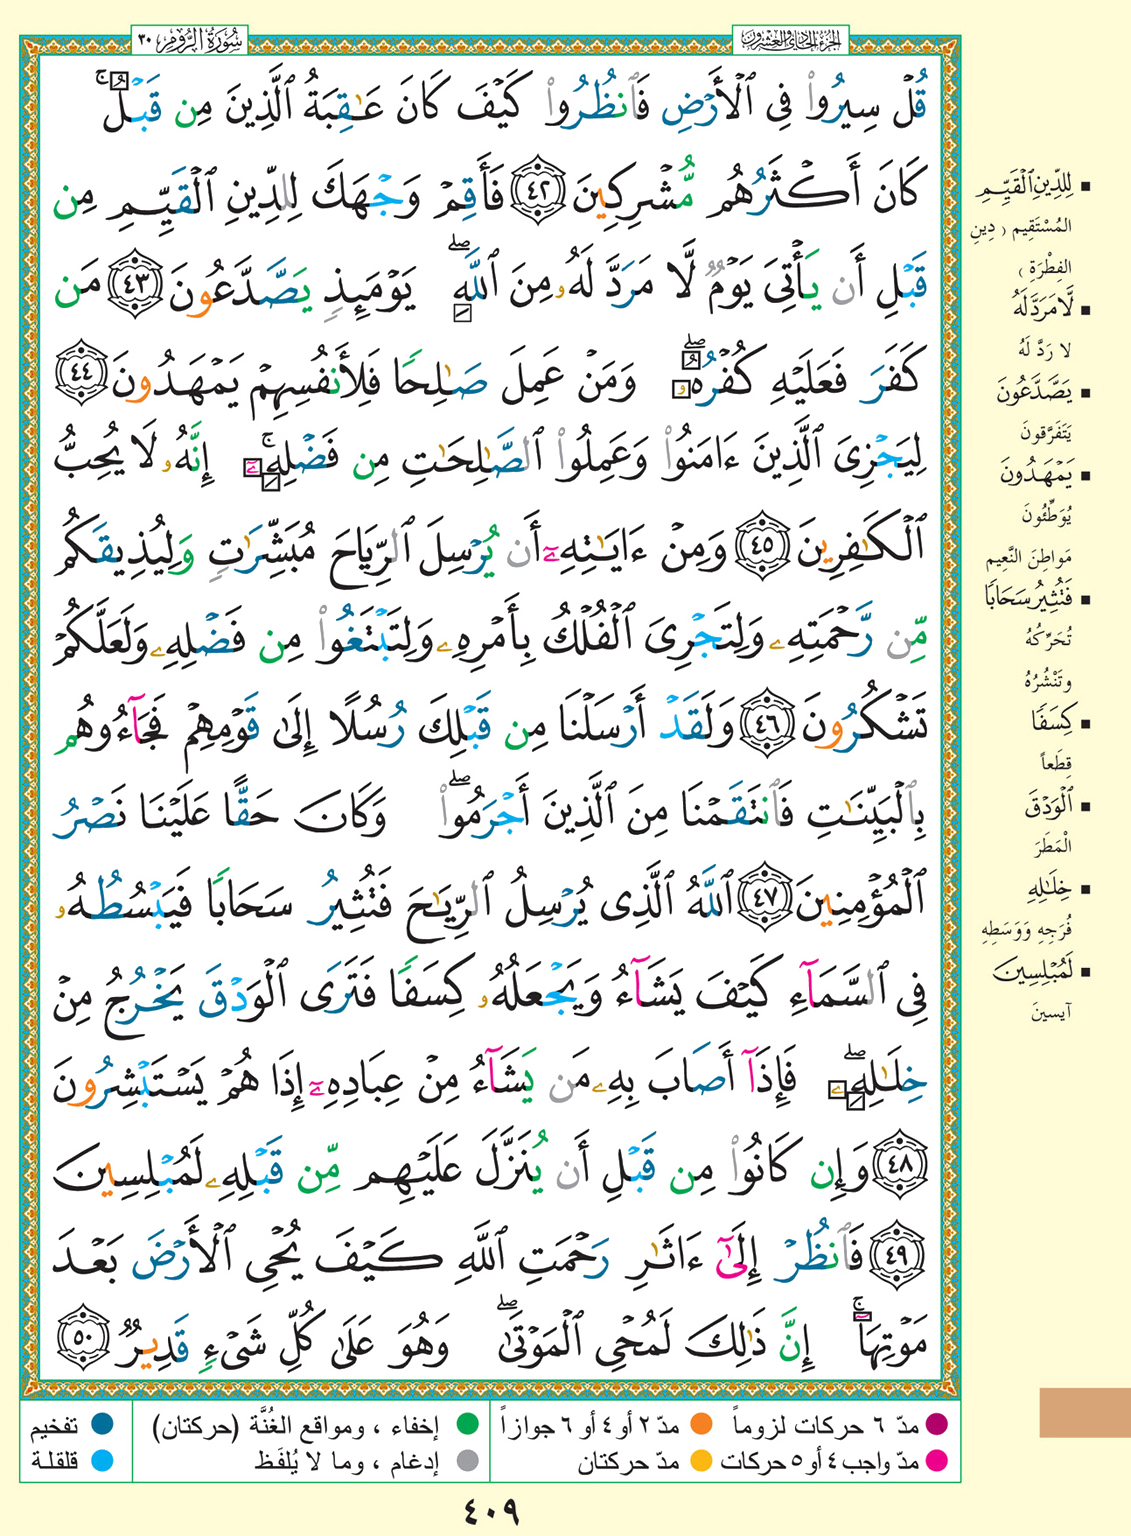 سُورَةُ الرُّومِ ٣٠
الجزء الحادي والعشرون
قُلۡ سِيرُواْ فِى ٱلۡأَرۡضِ فَٱنظُرُواْ كَيۡفَ كَانَ عَـٰقِبَةُ ٱلَّذِينَ مِن قَبۡلُۚ
كَانَ أَكۡثَرُهُم مُّشۡرِكِينَ ٤٢ فَأَقِمۡ وَجۡهَكَ لِلدِّينِ ٱلۡقَيِّمِ مِن
قَبۡلِ أَن يَأۡتِىَ يَوۡمٌ لَّا مَرَدَّ لَهُۥ مِنَ ٱللَّهِۖ يَوۡمَئِذٍ يَصَّدَّعُونَ ٤٣ مَن
كَفَرَ فَعَلَيۡهِ كُفۡرُهُۥۖ وَمَنۡ عَمِلَ صَـٰلِحًا فَلِأَنفُسِهِمۡ يَمۡهَدُونَ ٤٤
لِيَجۡزِىَ ٱلَّذِينَ ءَامَنُواْ وَعَمِلُواْ ٱلصَّـٰلِحَـٰتِ مِن فَضۡلِهِۦٓۚ إِنَّهُۥ لَا يُحِبُّ
ٱلۡكَـٰفِرِينَ ٤٥ وَمِنۡ ءَايَـٰتِهِۦٓ أَن يُرۡسِلَ ٱلرِّيَاحَ مُبَشِّرَٰتٍ وَلِيُذِيقَكُم
مِّن رَّحۡمَتِهِۦ وَلِتَجۡرِىَ ٱلۡفُلۡكُ بِأَمۡرِهِۦ وَلِتَبۡتَغُواْ مِن فَضۡلِهِۦ وَلَعَلَّكُمۡ
تَشۡكُرُونَ ٤٦ وَلَقَدۡ أَرۡسَلۡنَا مِن قَبۡلِكَ رُسُلًا إِلَىٰ قَوۡمِهِمۡ فَجَآءُوهُم
بِٱلۡبَيِّنَـٰتِ فَٱنتَقَمۡنَا مِنَ ٱلَّذِينَ أَجۡرَمُواْۖ وَكَانَ حَقًّا عَلَيۡنَا نَصۡرُ
ٱلۡمُؤۡمِنِينَ ٤٧ ٱللَّهُ ٱلَّذِى يُرۡسِلُ ٱلرِّيَـٰحَ فَتُثِيرُ سَحَابًا فَيَبۡسُطُهُۥ
فِى ٱلسَّمَآءِ كَيۡفَ يَشَآءُ وَيَجۡعَلُهُۥ كِسَفًا فَتَرَى ٱلۡوَدۡقَ يَخۡرُجُ مِنۡ
خِلَـٰلِهِۦۖ فَإِذَآ أَصَابَ بِهِۦ مَن يَشَآءُ مِنۡ عِبَادِهِۦٓ إِذَا هُمۡ يَسۡتَبۡشِرُونَ
٤٨ وَإِن كَانُواْ مِن قَبۡلِ أَن يُنَزَّلَ عَلَيۡهِم مِّن قَبۡلِهِۦ لَمُبۡلِسِينَ
٤٩ فَٱنظُرۡ إِلَىٰٓ ءَاثَـٰرِ رَحۡمَتِ ٱللَّهِ كَيۡفَ يُحۡىِ ٱلۡأَرۡضَ بَعۡدَ
مَوۡتِهَآۚ إِنَّ ذَٰلِكَ لَمُحۡىِ ٱلۡمَوۡتَىٰۖ وَهُوَ عَلَىٰ كُلِّ شَىۡءٍ قَدِيرٌ ٥٠
لِلدِّينِ ٱلۡقَيِّمِ
المُسْتَقِيم ( دِينِ
الفِطْرَةِ )
لَّا مَرَدَّ لَهُ
لا رَدَّ لَهُ
يَصَّدَّعُونَ
يَتَفَرَّقونَ
يَمۡهَدُونَ
يُوَطِّئُونَ
مَواطِنَ النَّعِيمِ
فَتُثِيرُ سَحَابًا
تُحَرِّكُهُ
وتَنْشُرُهُ
كِسَفًا
قِطَعاً
ٱلۡوَدۡقَ
الْمَطَرَ
خِلَـٰلِهِ
فُرَجِهِ وَوَسَطِهِ
لَمُبۡلِسِينَ
آيِسينَ
مدّ ٦ حركات لزوماً مدّ ٢ أو ٤ أو ٦ جوازاً إخفاء ، ومواقع الغُنَّة (حركتان) تفخيم
مدّ واجب ٤ أو ٥ حركات مدّ حركتان إدغام ، وما لا يُلفَظ قلقلة
٤٠٩